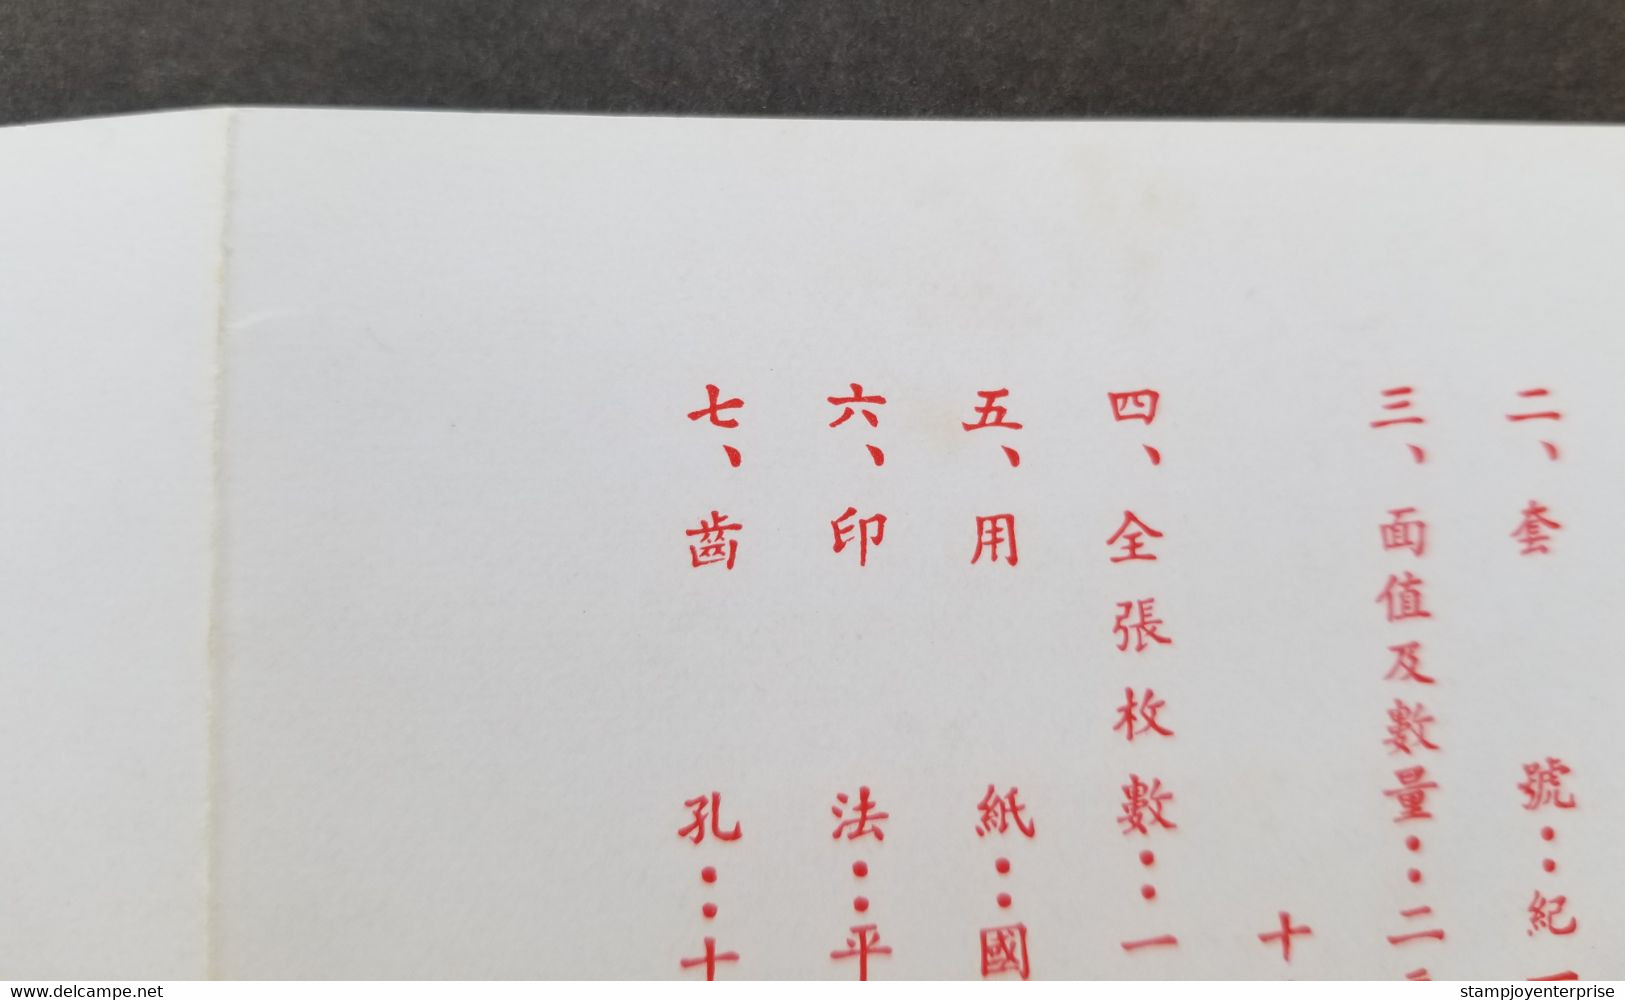 二、套號：紀
三、面值及數量：二
十
四、全張枚數：一
五、用紙：國
六、印法：平
七、齒孔：十
www.delcampe.net
stampjoyenterprise